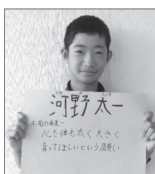 河野太一
名前の由来…
心も体も太く大きく
育ってほしいという願い